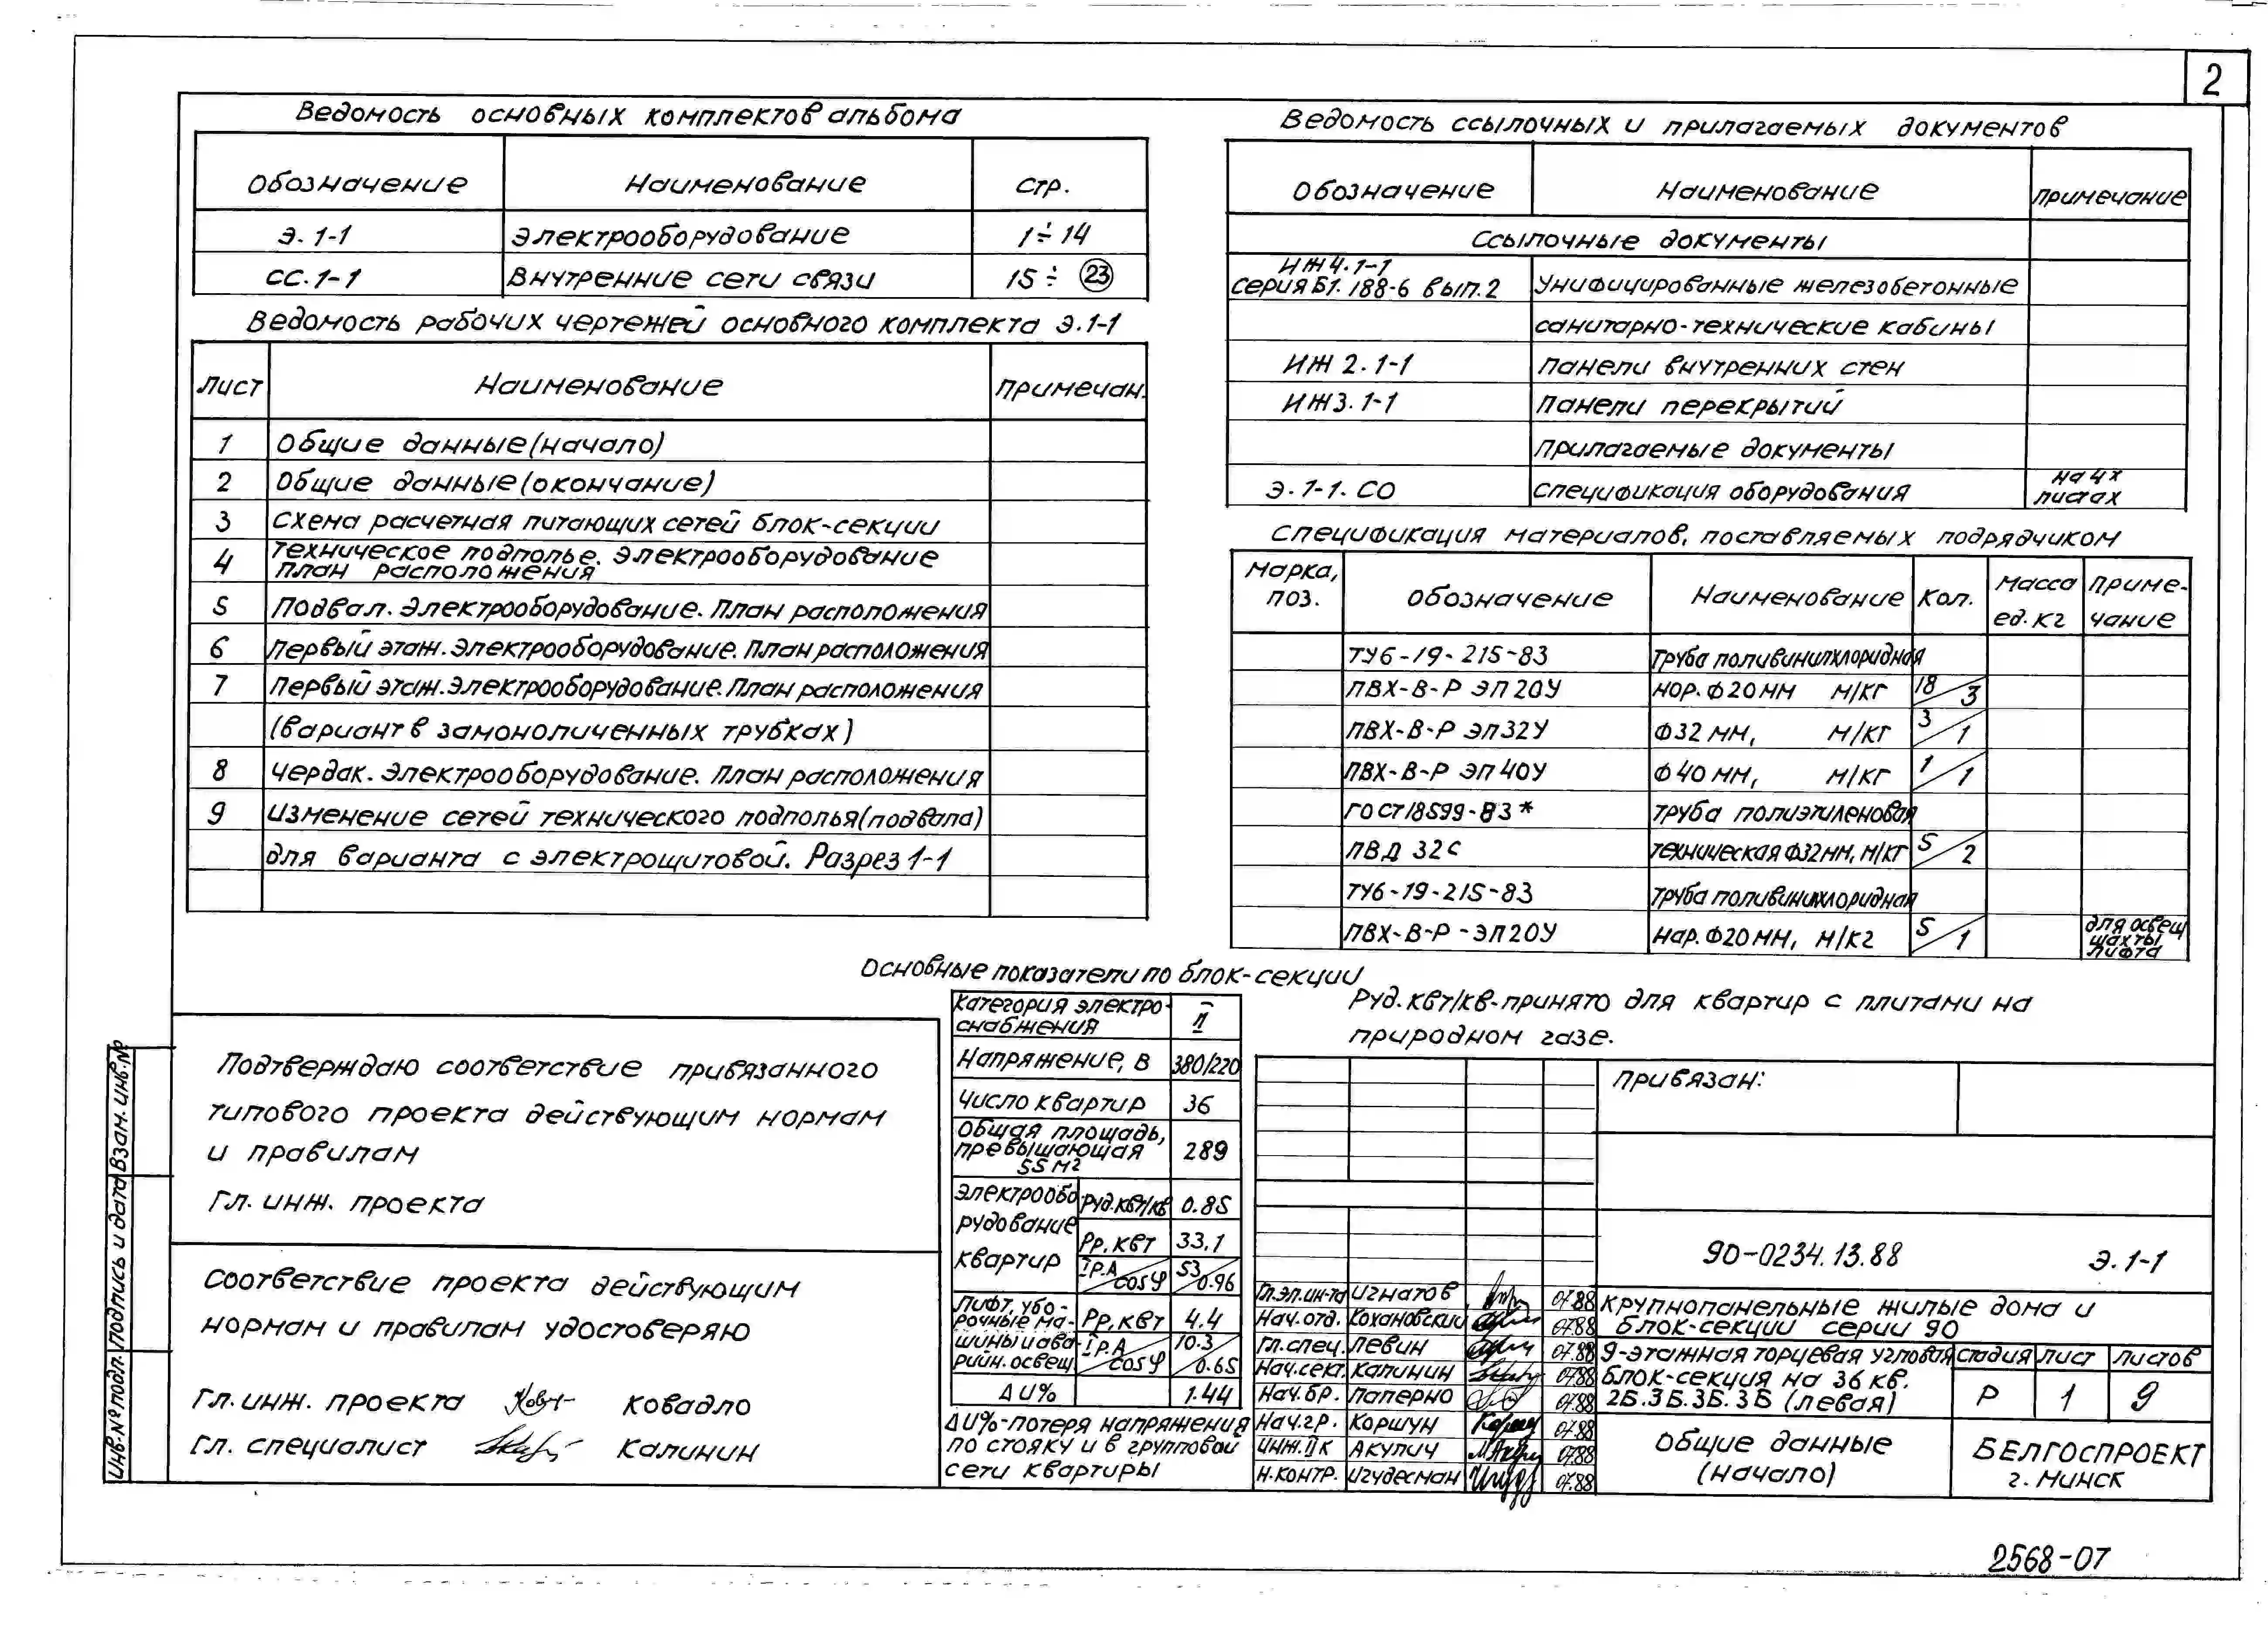 2
Ведомость основных комплектов альбома
Обозначение Наименование стр.
Э. 1-1 Электрооборудование 1÷14
СС. 1-1 Внутренние сети связи 15÷ 23
Ведомость рабочих чертежей основного комплекта Э.1-1
Лист Наименование Примечан.
1 Общие данные (начало)
2 Общие данные (окончание)
3 Схема расчетная питающих сетей блок-секции
4 Техническое подполье. Электрооборудование
План расположения
5 Подвал. Электрооборудование. План расположения
6 Первый этаж. Электрооборудование. План расположения
7 Первый этаж. Электрооборудование. План расположения
(вариант в замоноличенных трубках)
8 Чердак. Электрооборудование. План расположения
9 Изменение сетей технического подполья (подвала)
для варианта с электрощитовой. Разрез 1-1
Ведомость ссылочных и прилагаемых документов
Обозначение Наименование Примечание
Ссылочные документы
ИЖ4.1-1
Серия Б1.188-6 вып.2 Унифицированные железобетонные
санитарно-технические кабины
ИЖ 2.1-1 Панели внутренних стен
ИЖ3.1-1 Панели перекрытий
Прилагаемые документы
Э.1-1.СО Спецификация оборудования на 4х
листах
Спецификация материалов, поставляемых подрядчиком
Марка,
поз. Обозначение Наименование Кол. Масса
ед.кг Приме-
чание
ТУ6-19-215-83 Труба поливинилхлоридная
ПВХ-В-Р ЭП20У нор.Ф20мм м/кг 18/3
ПВХ-В-Р ЭП32У Ф32 мм, м/кг 3/1
ПВХ-В-Р ЭП40У Ф40мм, м/кг 1/1
ГОСТ18599-83* Труба полиэтиленовая
ПВД 32С техническая Ф32мм, м/кг 5/2
ТУ6-19-215-83 Труба поливинилхлоридная
ПВХ-В-Р-ЭП20У нар.Ф20мм, м/кг 5/1 для освещ
шахты
лифта
Основные показатели по блок-секции
Категория электро-
снабжения II
Напряжение, В 380/220
Число квартир 36
Общая площадь,
превышающая
55м2 289
Электрообо-
рудование
квартир
Руд.кВт/кв 0.85
Рр, кВт 33.1
Iр.А/cosφ 53/0.96
Лифт, убо-
рочные ма-
шины и ава-
рийн. освещ.
Рр, кВт 4.4
Iр.А/cosφ 10.3/0.65
ΔU% 1.44
ΔU%-потеря напряжения
по стояку и в групповой
сети квартиры
Руд.кВт/кв-принято для квартир с плитами на
природном газе.
Подтверждаю соответствие привязанного
типового проекта действующим нормам
и правилам
Гл. инж. проекта
Соответствие проекта действующим
нормам и правилам удостоверяю
Гл. инж. проекта Ковадло
Гл. специалист Калинин
Инв.№ подл. Подпись и дата Взам.инв.№
Привязан:
90-0234.13.88 Э.1-1
Гл.эл.ин-та Игнатов 07.88
Нач.отд. Кохановский 07.88
Гл.спец. Левин 07.88
Нач.сект. Калинин 07.88
Нач.бр. Паперно 07.88
Нач.гр. Коршун 07.88
Инж.IIк Акулич 07.88
Н.контр. Игудесман 07.88
Крупнопанельные жилые дома и
блок-секции серии 90
9-этажная торцевая угловая
блок-секция на 36 кв.
2Б.3Б.3Б.3Б (левая)
Стадия Лист Листов
Р 1 9
Общие данные
(начало)
БЕЛГОСПРОЕКТ
г. Минск
2568-07